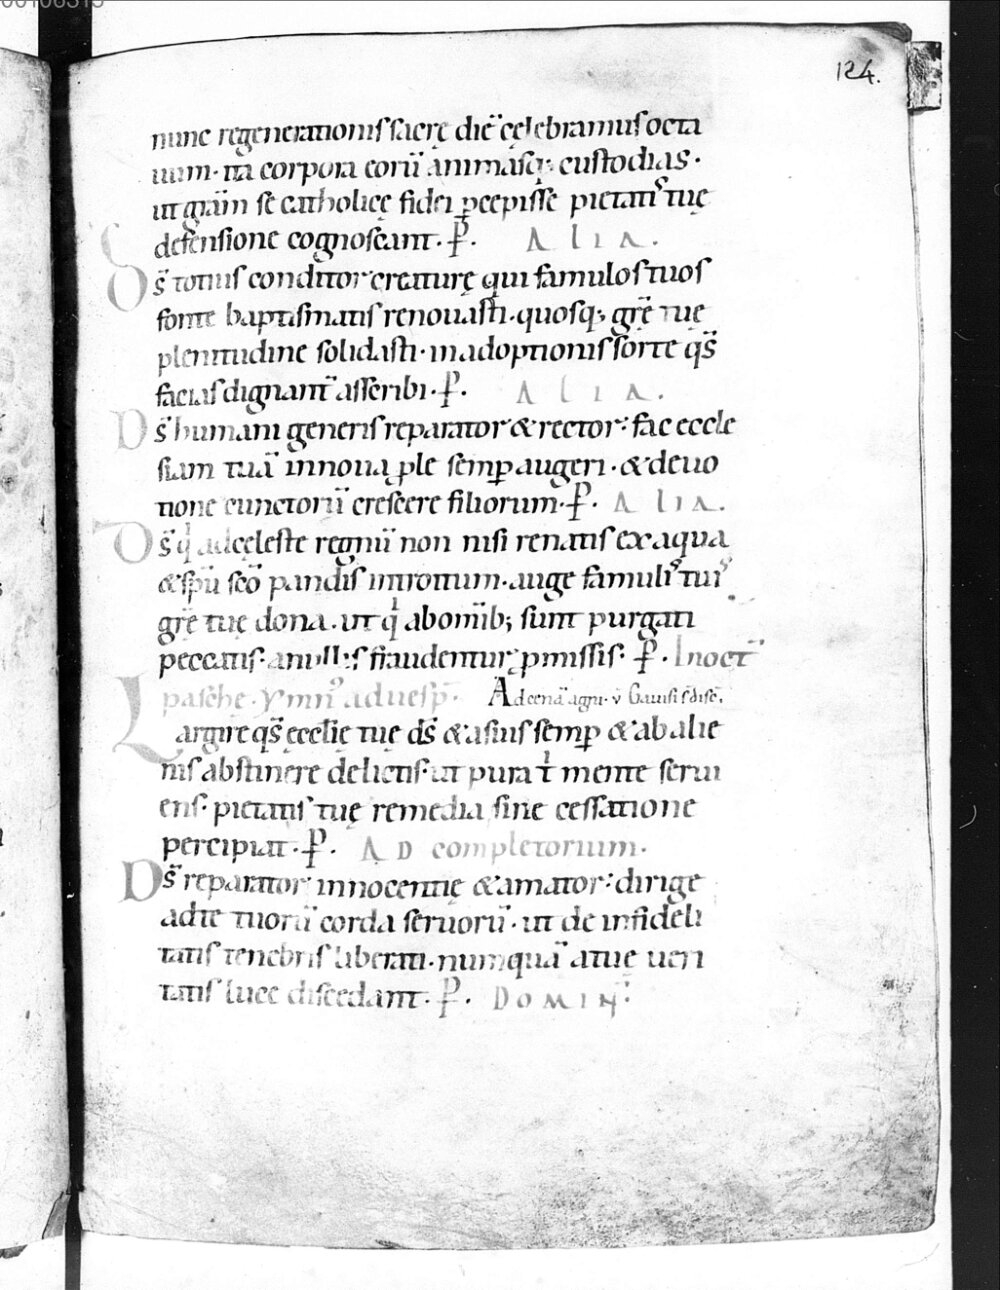 124.
nunc regenerationis sacrę diē cęlebramus octa
uum · ita corpora eorū animasq; custodias ·
ut gr̄am se catholicę fidei pcepisse pietatis tuę
defensione cognoscant · P. ALIA.
Ds̄ totius conditor creaturę qui famulos tuos
fonte baptismatis renouasti · quosq; gr̄ę tuę
plenitudine solidasti · in adoptionis sorte qs̄
facias dignant̄ asscribi · P. ALIA.
Ds̄ humani generis reparator & rector : fac eccle
siam tuā innoua ple semp augeri · & deuo
tione cunctorū crescere filiorum · P. ALIA.
Ds̄ q ad cęleste regnū non nisi renatis ex aqua
& sp̄u sc̄o pandis introitum · auge famulis tuis
gr̄ę tuę dona · ut q ab omib; sunt purgati
peccatis · a nullis fraudentur pmissis · P. In oct
pasche. ymn aduesp. Ad cenā agni · v Gauisi s̄ disc̄.
Largire qs̄ ęcclię tuę ds̄ & a suis semp & ab alie
nis abstinere delictis · ut pura t mente serui
ens · pietatis tuę remedia sine cessatione
percipiat · P. AD completorium.
Ds̄ reparator innocentię & amator : dirige
ad te tuorū corda seruorū · ut de infideli
tatis tenebris liberati · numquā a tuę ueri
tatis luce discedant · P. DOMIN